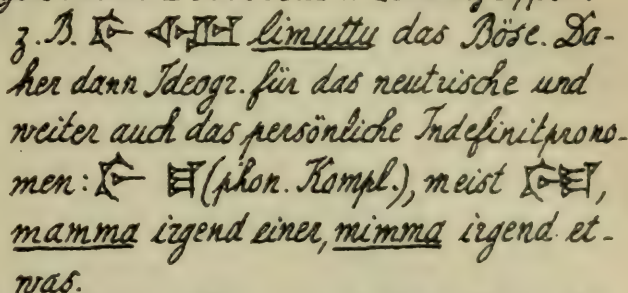 z. B. 𒃻 𒅆𒌨 limuttu das Böse. Da-
her dann Ideogr. für das neutrische und
weiter auch das persönliche Indefinitprono-
men: 𒃻 𒈠 (phon. Kompl.), meist 𒃻𒈠,
mamma irgend einer, mimma irgend et-
was.